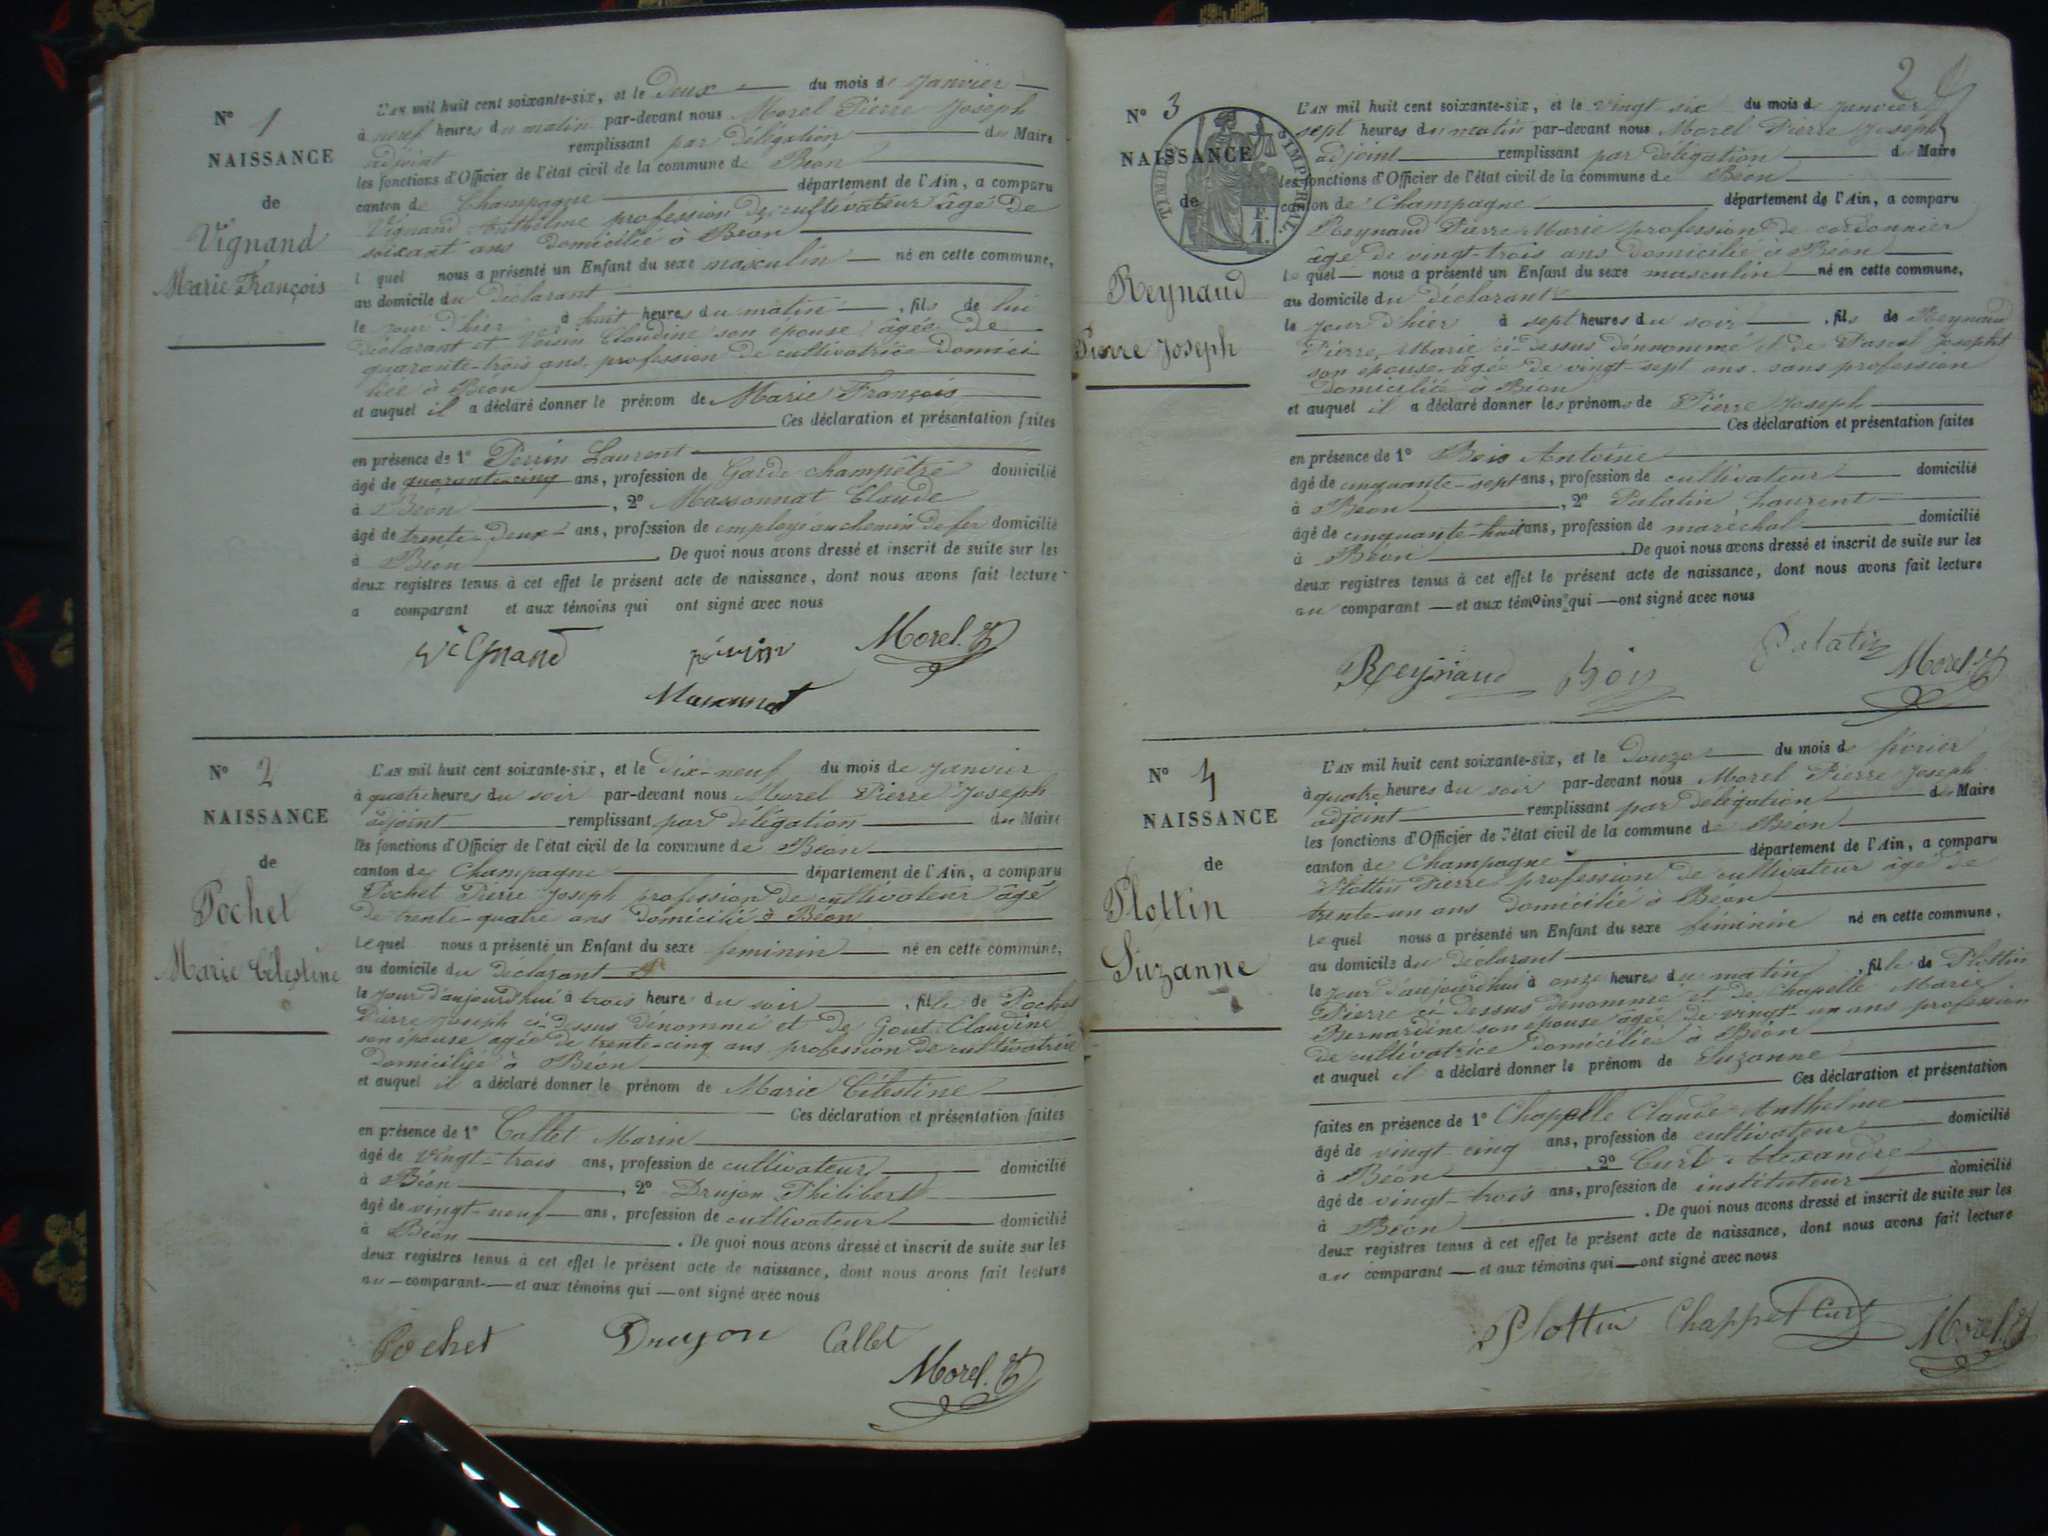 N° 1
NAISSANCE
de
Vignand
Marie François
L'AN mil huit cent soixante-six, et le Deux du mois de Janvier
à neuf heures du matin par-devant nous Morel Pierre Joseph
adjoint remplissant par délégation du Maire
les fonctions d'Officier de l'état civil de la commune de Béon
canton de Champagne département de l'Ain, a comparu
Vignand Anthelme profession de cultivateur âgé de
soixant ans domicilié à Béon
l quel nous a présenté un Enfant du sexe masculin né en cette commune,
au domicile du déclarant
le jour d'hier à huit heures du matin, fils de lui
déclarant et Voisin Claudine son épouse âgée de
quarante-trois ans, profession de cultivatrice domici
liée à Béon
et auquel il a déclaré donner le prénom de Marie François
Ces déclaration et présentation faites
en présence de 1° Perrin Laurent
âgé de quarante-cinq ans, profession de Garde champêtre domicilié
à Béon, 2° Massonnat Claude
âgé de trente-deux ans, profession de employé au chemin de fer domicilié
à Béon. De quoi nous avons dressé et inscrit de suite sur les
deux registres tenus à cet effet le présent acte de naissance, dont nous avons fait lecture
a comparant et aux témoins qui ont signé avec nous
Vignand Perrin Morel
Massonnat
N° 2
NAISSANCE
de
Pochet
Marie Célestine
L'AN mil huit cent soixante-six, et le Dix-neuf du mois de Janvier
à quatre heures du soir par-devant nous Morel Pierre Joseph
adjoint remplissant par délégation du Maire
les fonctions d'Officier de l'état civil de la commune de Béon
canton de Champagne département de l'Ain, a comparu
Pochet Pierre Joseph profession de cultivateur âgé
de trente-quatre ans domicilié à Béon
le quel nous a présenté un Enfant du sexe feminin né en cette commune,
au domicile du déclarant
le jour d'aujourd'hui à trois heure du soir, fille de Pochet
Pierre Joseph ci-dessus dénommé et de Gout Claudine
son épouse agée de trente-cinq ans profession de cultivatrice
domiciliée à Béon
et auquel il a déclaré donner le prénom de Marie Célestine
Ces déclaration et présentation faites
en présence de 1° Callet Marin
âgé de vingt-trois ans, profession de cultivateur domicilié
à Béon, 2° Drujon Philibert
âgé de vingt-neuf ans, profession de cultivateur domicilié
à Béon. De quoi nous avons dressé et inscrit de suite sur les
deux registres tenus à cet effet le présent acte de naissance, dont nous avons fait lecture
au comparant et aux témoins qui ont signé avec nous
Pochet Drujon Callet
Morel
2
N° 3
NAISSANCE
de
Reynaud
Pierre Joseph
TIMBRE IMPERIAL
1 F.
L'AN mil huit cent soixante-six, et le vingt six du mois de janvier
à sept heures du matin par-devant nous Morel Pierre Joseph
adjoint remplissant par délégation du Maire
les fonctions d'Officier de l'état civil de la commune de Béon
canton de Champagne département de l'Ain, a comparu
Reynaud Pierre Marie profession de cordonnier
âgé de vingt-trois ans domicilié à Béon
le quel nous a présenté un Enfant du sexe masculin né en cette commune,
au domicile du déclarant
le jour d'hier à sept heures du soir, fils de Reynaud
Pierre Marie ci-dessus dénnommé et de Pascal Josepht
son épouse âgée de vingt-sept ans sans profession
domiciliée à Béon
et auquel il a déclaré donner les prénoms de Pierre Joseph
Ces déclaration et présentation faites
en présence de 1° Bois Antoine
âgé de cinquante-sept ans, profession de cultivateur domicilié
à Béon, 2° Palatin Laurent
âgé de cinquante-huit ans, profession de maréchal domicilié
à Béon. De quoi nous avons dressé et inscrit de suite sur les
deux registres tenus à cet effet le présent acte de naissance, dont nous avons fait lecture
au comparant et aux témoins qui ont signé avec nous
Reynaud Boy Palatin Morel
N° 4
NAISSANCE
de
Plottin
Suzanne
L'AN mil huit cent soixante-six, et le Douze du mois de février
à quatre heures du soir par-devant nous Morel Pierre Joseph
adjoint remplissant par délégation du Maire
les fonctions d'Officier de l'état civil de la commune de Béon
canton de Champagne département de l'Ain, a comparu
Plottin Pierre profession de cultivateur âgé de
trente-un ans domicilié à Béon
le quel nous a présenté un Enfant du sexe féminin né en cette commune,
au domicile du déclarant
le jour d'aujourd'hui à onze heures du matin, fille de Plottin
Pierre ci-dessus dénommé et de Chapelle Marie
Bernardine son épouse âgée de vingt-un ans profession
de cultivatrice domiciliée à Béon
et auquel il a déclaré donner le prénom de Suzanne
Ces déclaration et présentation
faites en présence de 1° Chapelle Claude Anthelme
âgé de vingt cinq ans, profession de cultivateur domicilié
à Béon, 2° Curt Alexandre
âgé de vingt-trois ans, profession de instituteur domicilié
à Béon. De quoi nous avons dressé et inscrit de suite sur les
deux registres tenus à cet effet le présent acte de naissance, dont nous avons fait lecture
au comparant et aux témoins qui ont signé avec nous
Plottin Chappel Curt Morel